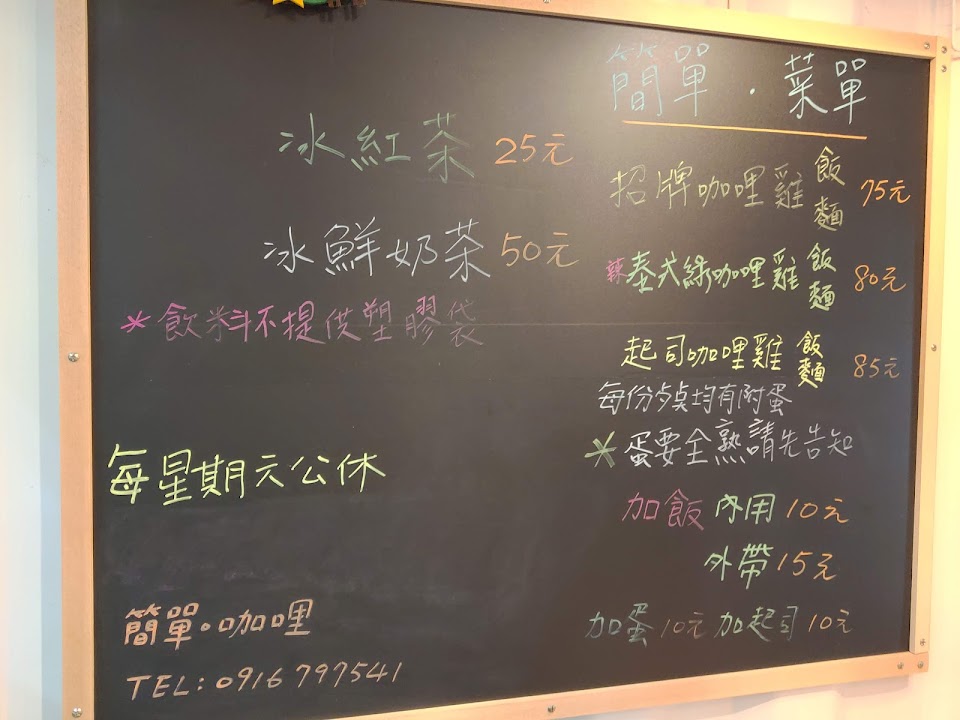 簡單．菜單
招牌咖哩雞飯麵 75元
辣泰式綠咖哩雞飯麵 80元
起司咖哩雞飯麵 85元
每份均有附蛋
＊蛋要全熟請先告知
加飯 內用 10元
外帶 15元
加蛋 10元 加起司 10元
冰紅茶 25元
冰鮮奶茶 50元
＊飲料不提供塑膠袋
每星期六公休
簡單。咖哩
TEL:0916 797541